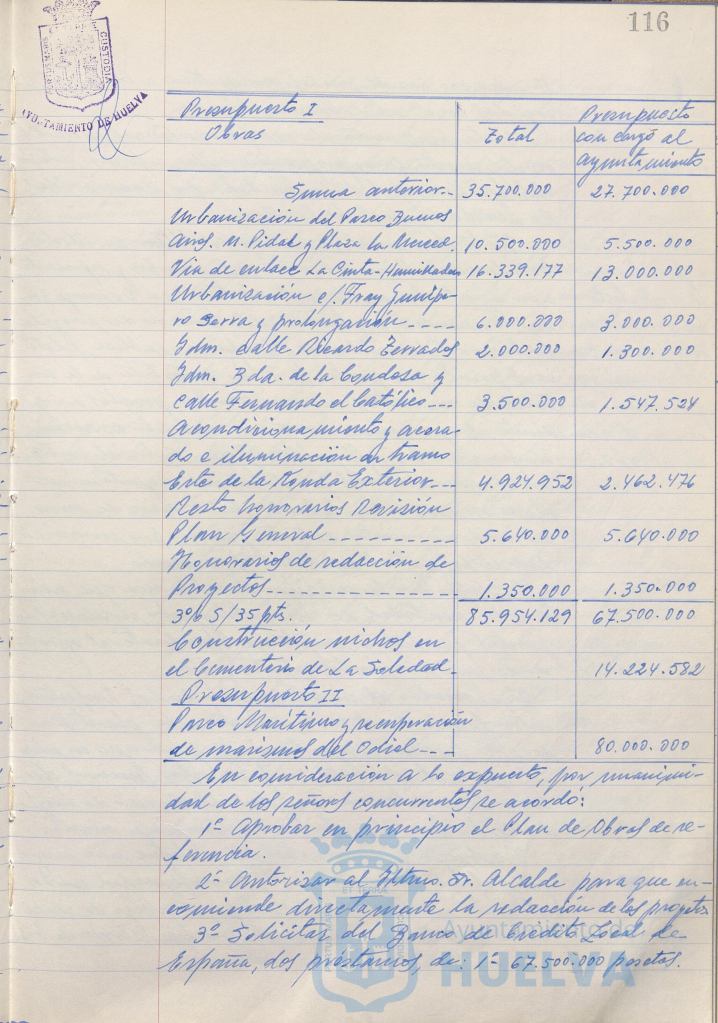 116
CUSTODIA
AYUNTAMIENTO DE HUELVA
Presupuesto I Presupuesto
Obras Total con cargo al
ayuntamiento
Suma anterior.. 35.700.000 27.700.000
Urbanización del Paseo Buenos
Aires. M. Pidal y Plaza la Merced. 10.500.000 5.500.000
Via de enlace La Cinta-Humilladero 16.339.177 13.000.000
Urbanización c/. Fray Junipe-
ro Serra y prolongación.---- 6.000.000 3.000.000
Idm. calle Ricardo Terrados 2.000.000 1.300.000
Idm. Bda. de la y
calle Fernando el Católico--- 3.500.000 1.547.524
Acondicionamiento y acera-
do e iluminación en tramo
Este de la Ronda Exterior.--- 4.924.952 2.462.476
Resto honorarios Revisión
Plan General ---------- 5.640.000 5.640.000
Honorarios de redacción de
Proyectos.-------------- 1.350.000 1.350.000
3% S/35 pts. 85.954.129 67.500.000
Construcción nichos en
el Cementerio de La Soledad- 14.224.582
Presupuesto II
Parco Marítimo y recuperación
de marismas del Odiel--- 80.000.000
En consideración a lo expuesto, por unanimi-
dad de los señores concurrentes se acordó:
1º Aprobar en principio el Plan de Obras de re-
ferencia.
2º Autorizar al Iltmo. Sr. Alcalde para que en-
comiende directamente la redacción de los proyectos
3º Solicitar del Banco de Crédito Local de
España, dos préstamos, de: 1º 67.500.000 pesetas.
Ayuntamiento de
HUELVA